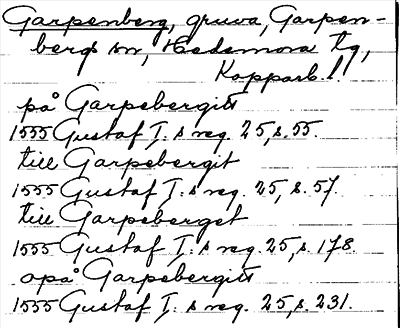 Garpenberg, gruva, Garpen-
bergs sn, Hedemora tg,
Kopparb. l.
på Garpebergitt
1555 Gustaf I:s reg. 25, s. 55.
till Garpebergit
1555 Gustaf I:s reg. 25, s. 57.
till Garpeberget
1555 Gustaf I:s reg. 25, s. 178.
opå Garpebergitt
1555 Gustaf I:s reg. 25, s. 231.